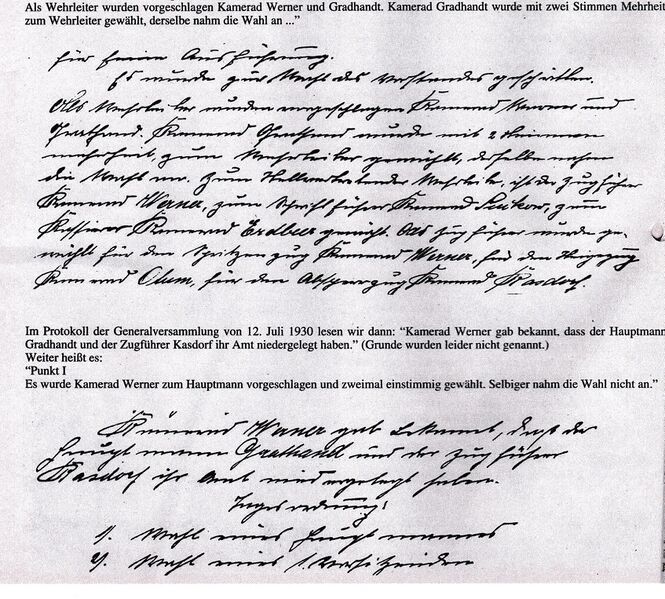 Als Wehrleiter wurden vorgeschlagen Kamerad Werner und Gradhandt. Kamerad Gradhandt wurde mit zwei Stimmen Mehrheit
zum Wehrleiter gewählt, derselbe nahm die Wahl an ...”
für seine Ausführung.
Es wurde zur Wahl des Vorstandes geschritten.
Als Wehrleiter wurden vorgeschlagen Kamerad Werner und
Kamerad wurde mit 2 Stimmen
mehrheit, zum Wehrleiter gewählt, derselbe nahm
die Wahl an. Zum Stellvertretender Wehrleiter, ist der Zugführer
Kamerad Werner, zum Schriftführer Kamerad zum
Kassierer Kamerad Erdbeer gewählt. Als Zugführer wurde ge-
wählt für den Spritzenzug Kamerad Werner, für den
Kamerad Olum, für den Absperrzug Kamerad Kasdorf.
Im Protokoll der Generalversammlung von 12. Juli 1930 lesen wir dann: “Kamerad Werner gab bekannt, dass der Hauptmann
Gradhandt und der Zugführer Kasdorf ihr Amt niedergelegt haben.” (Grunde wurden leider nicht genannt.)
Weiter heißt es:
“Punkt I
Es wurde Kamerad Werner zum Hauptmann vorgeschlagen und zweimal einstimmig gewählt. Selbiger nahm die Wahl nicht an.”
Kamerad Werner gab bekannt, daß der
Hauptmann Grathandt und der Zugführer
Kasdorf ihr Amt niedergelegt haben.
Tagesordnung:
1). Wahl eines Hauptmannes
2). Wahl eines 1. Vorsitzenden